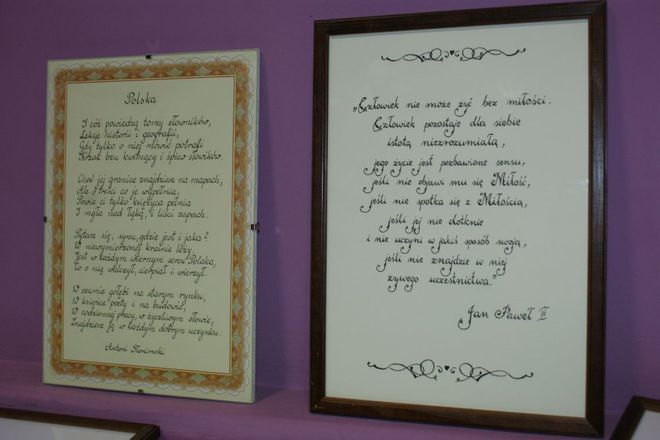 Polska
I cóż powiedzą tomy słowników,
Lekcje historii i geografii,
Gdy tylko o niej mówić potrafi
Krzak bzu kwitnący i śpiew słowików.
Choć jej granice znajdziesz na mapach,
Ale o treści co je wypełnia,
Powie ci tylko księżyca pełnia
I mgła nad łąką, i liści zapach.
Pytasz się, synu, gdzie jest i jaka?
W niewymierzonej krainie leży.
Jest w każdym wiernym sercu Polaka,
Co o nią walczył, cierpiał i wierzył.
W szumie gołębi na starym rynku,
W książce poety i na budowie,
W codziennej pracy, w życzliwym słowie,
Znajdziesz ją w każdym dobrym uczynku.
Antoni Słonimski
„Człowiek nie może żyć bez miłości.
Człowiek pozostaje dla siebie
istotą niezrozumiałą,
jego życie jest pozbawione sensu,
jeśli nie objawi mu się Miłość,
jeśli nie spotka się z Miłością,
jeśli jej nie dotknie
i nie uczyni w jakiś sposób swoją,
jeśli nie znajdzie w niej
żywego uczestnictwa."
Jan Paweł II